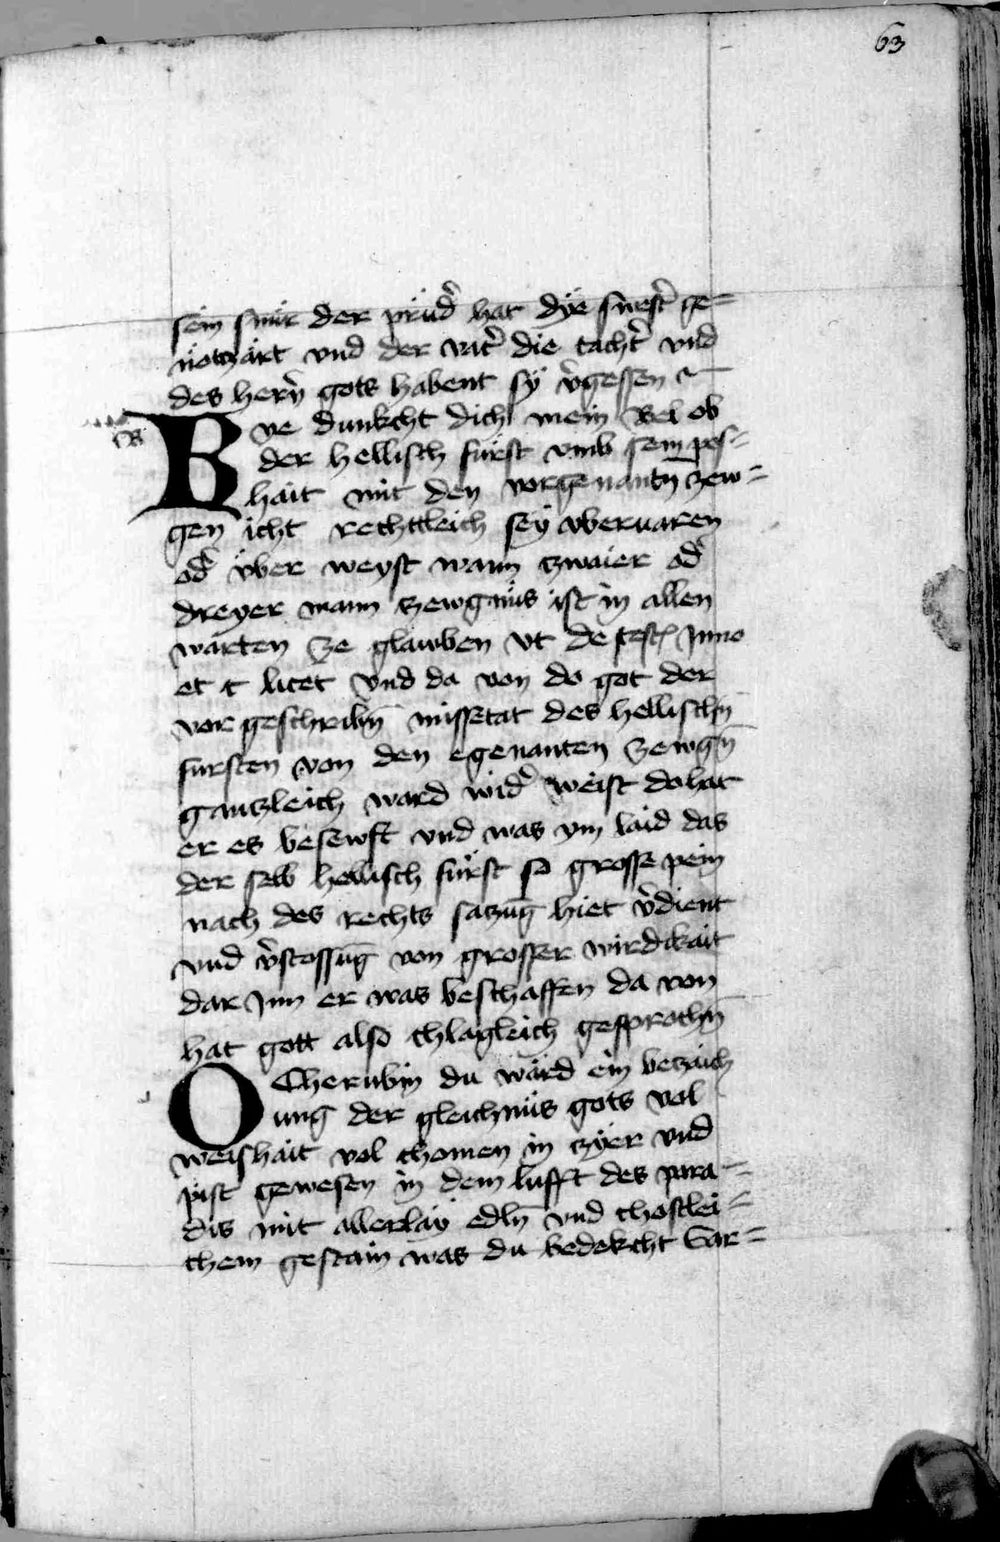 63
sein snür der prüder hat dÿe swester ge-
nötzärt vnd der vater die tachter vnd
des herrn gots habent sÿ vergessen
Be dunkcht dich mein Bel ob
der hellisch fürst vmb sein pos-
hait mit den vorgenantn zew-
gen icht rechttleich seÿ vberuaren
oder vber weyst wann zwaier oder
dreyer mann zewgnüs ist in allen
warten ze glawben vt de test Jnno
et t licet vnd da von do got der
vor geschribn missetat des hellischn
fursten von den egenanten zewgn
gantzleich ward wider weist do hat
er es besewft vnd was ym laid das
der selb hellisch fürst so grosse pein
nach des rechts satzung hiet verdient
vnd verstossung von grosser wirdikait
dar Jnn er was beschaffen da von
hat gott also chlagleich gesprochn
O Cherubin du wärd ein betzaich
ung der gleichnüs gots vol
weishait vol chomen in zÿer vnd
pist gewesen in dem lufft des para-
dis mit allerlay edln vnd chostlei-
chem gestain was du bedekcht Sar-